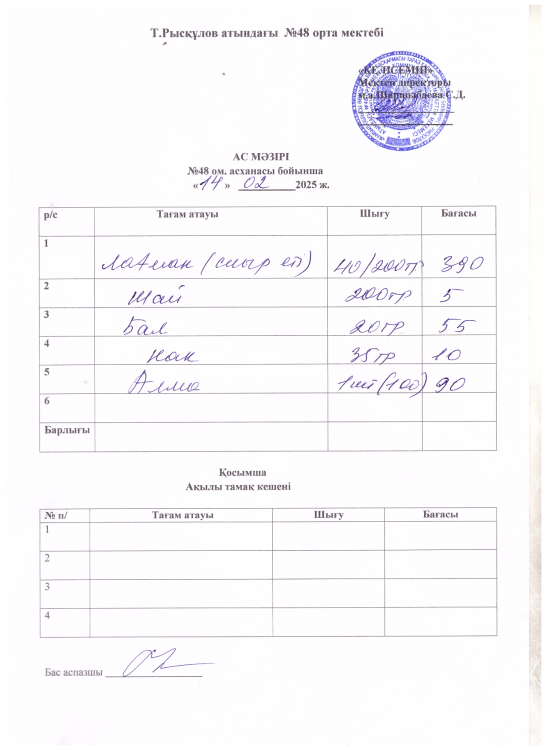 Т.Рысқұлов атындағы №48 орта мектебі
«КЕЛІСЕМІН»
Мектеп директоры
С.Д.
АС МӘЗІРІ
№48 ом. асханасы бойынша
«14» 02 2025 ж.
р/с Тағам атауы Шығу Бағасы
1 Лағман (сиыр еті) 40/200гр 390
2 Шай 200гр 5
3 Бал 20гр 55
4 Нан 35гр 10
5 Алма 1шт (100) 90
6
Барлығы
Қосымша
Ақылы тамақ кешені
№ п/ Тағам атауы Шығу Бағасы
1
2
3
4
Бас аспазшы